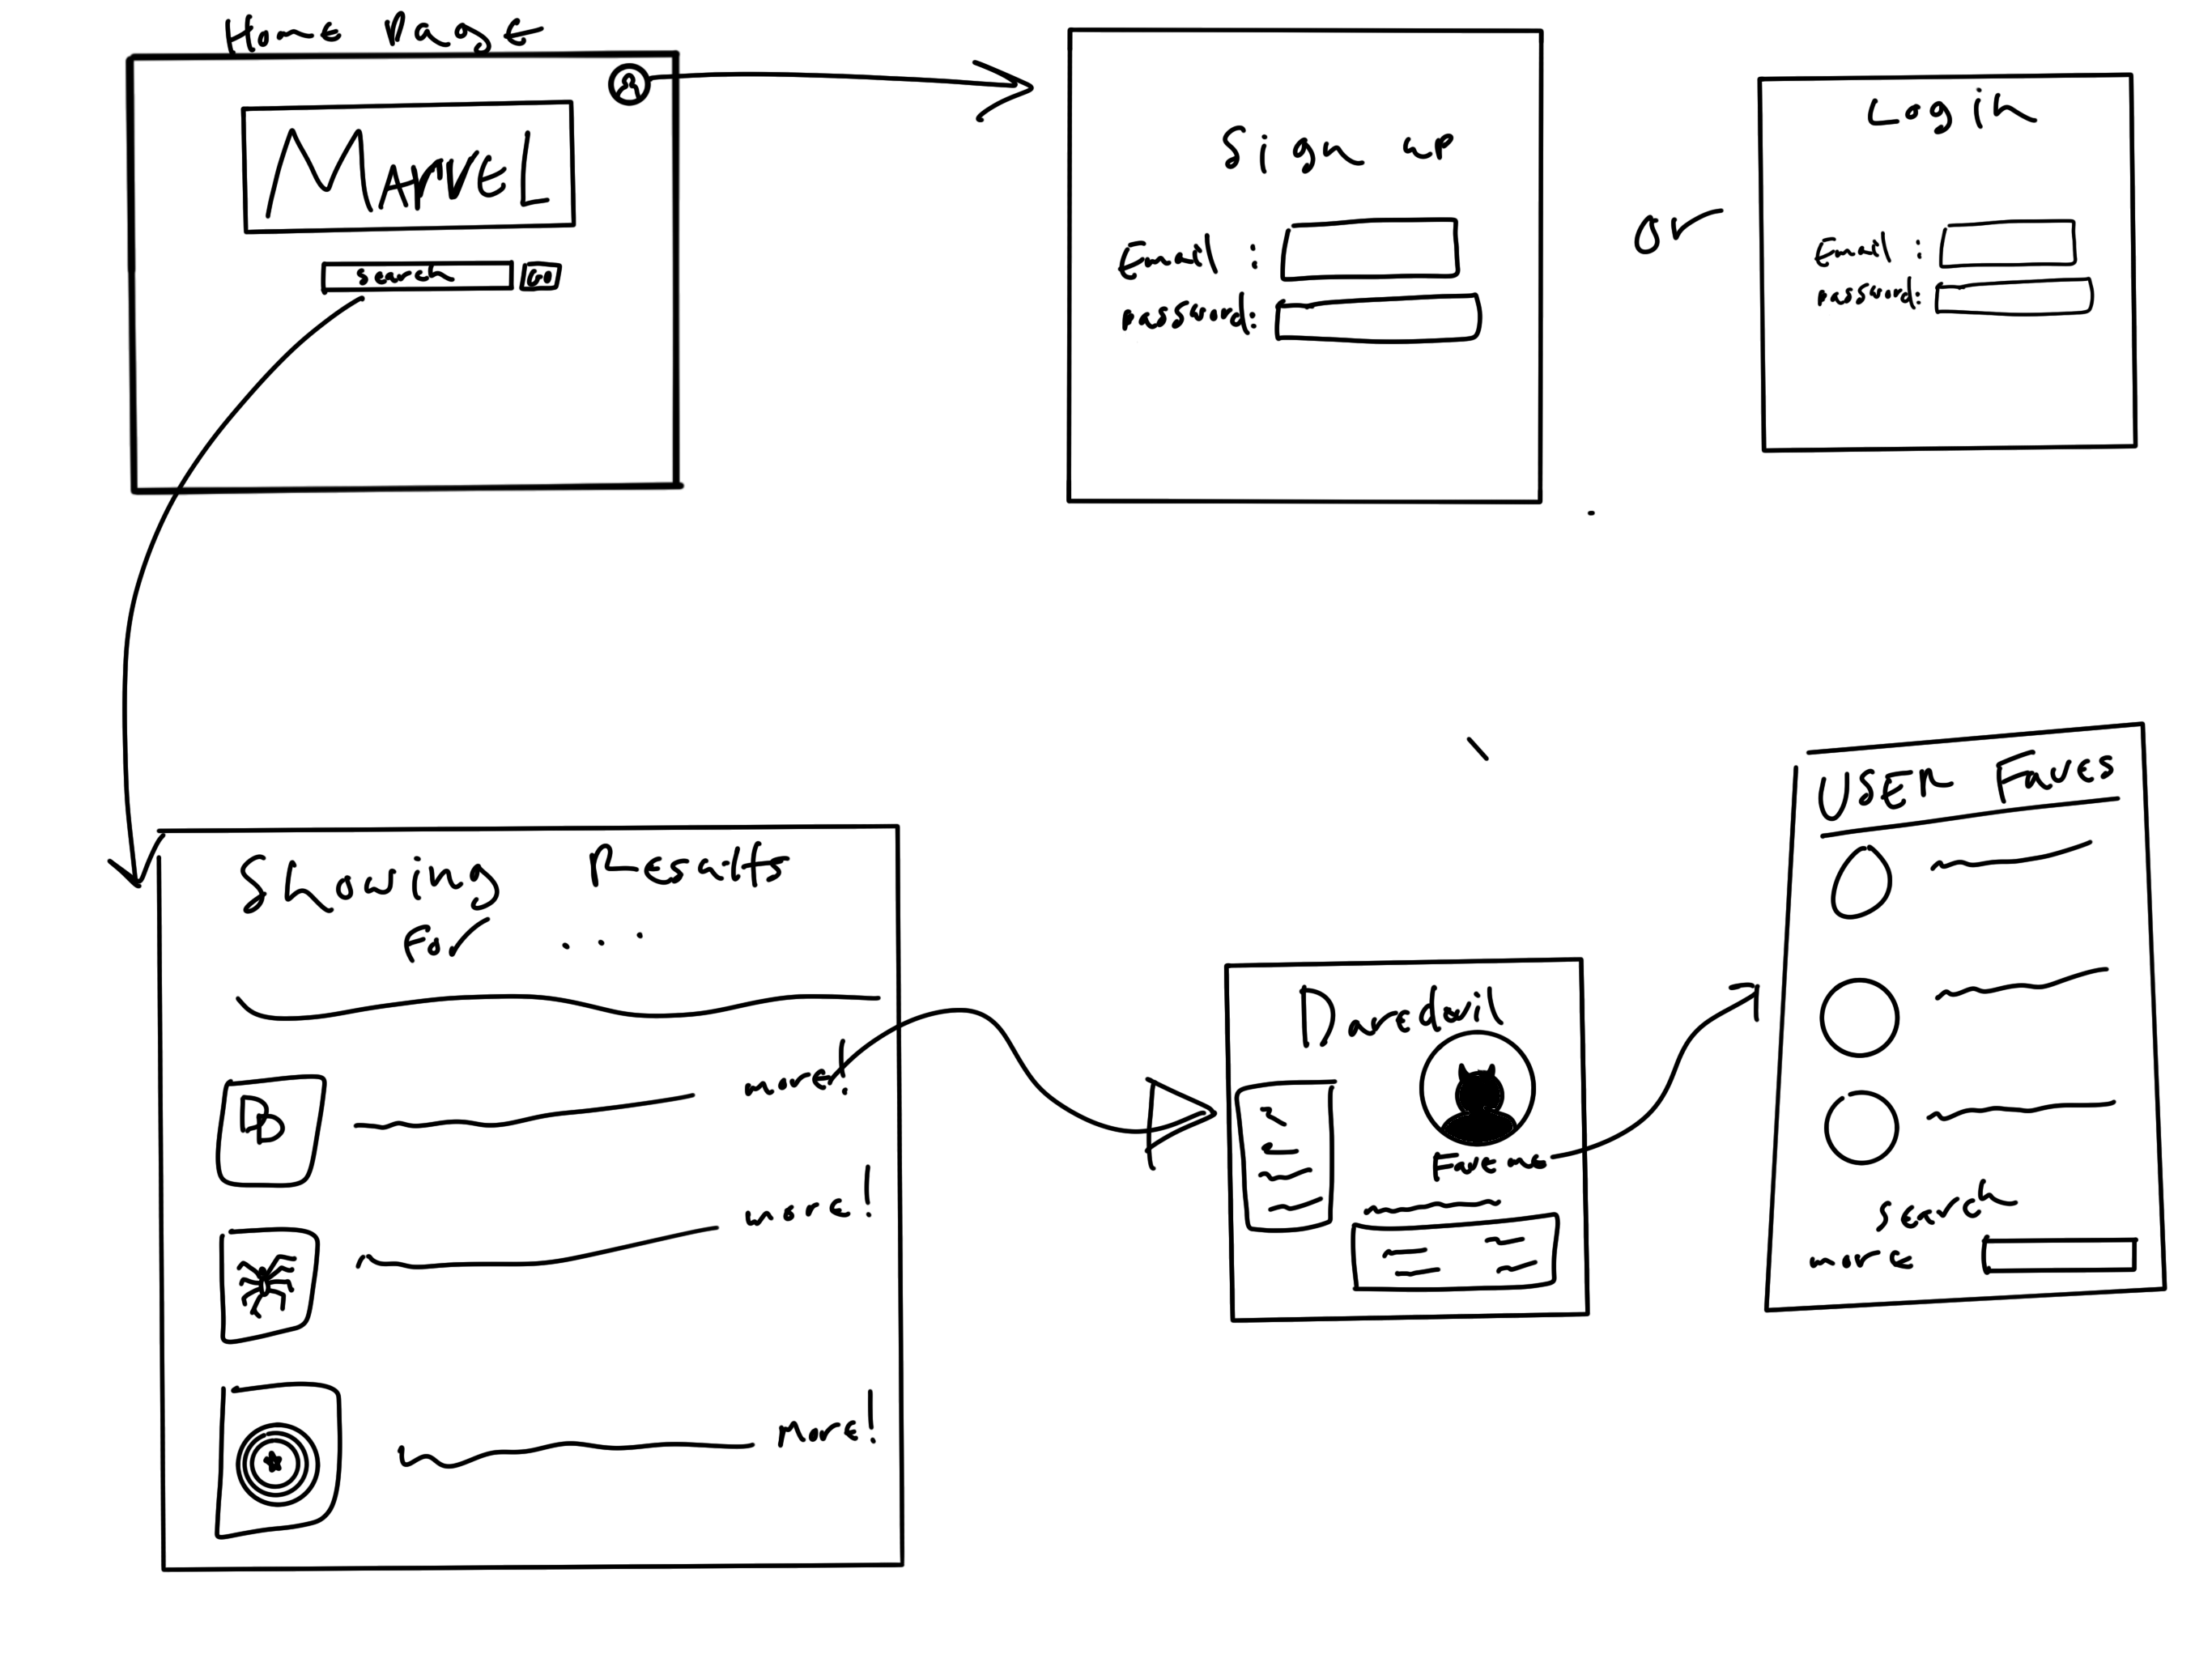 Home Page
MArvEL
search GO
Sign up
Email :
password:
or
Login
Email :
password:
Showing Results
For ...
DD
more!
more!
More!
Daredevil
Fave me
USER FAVES
search
more